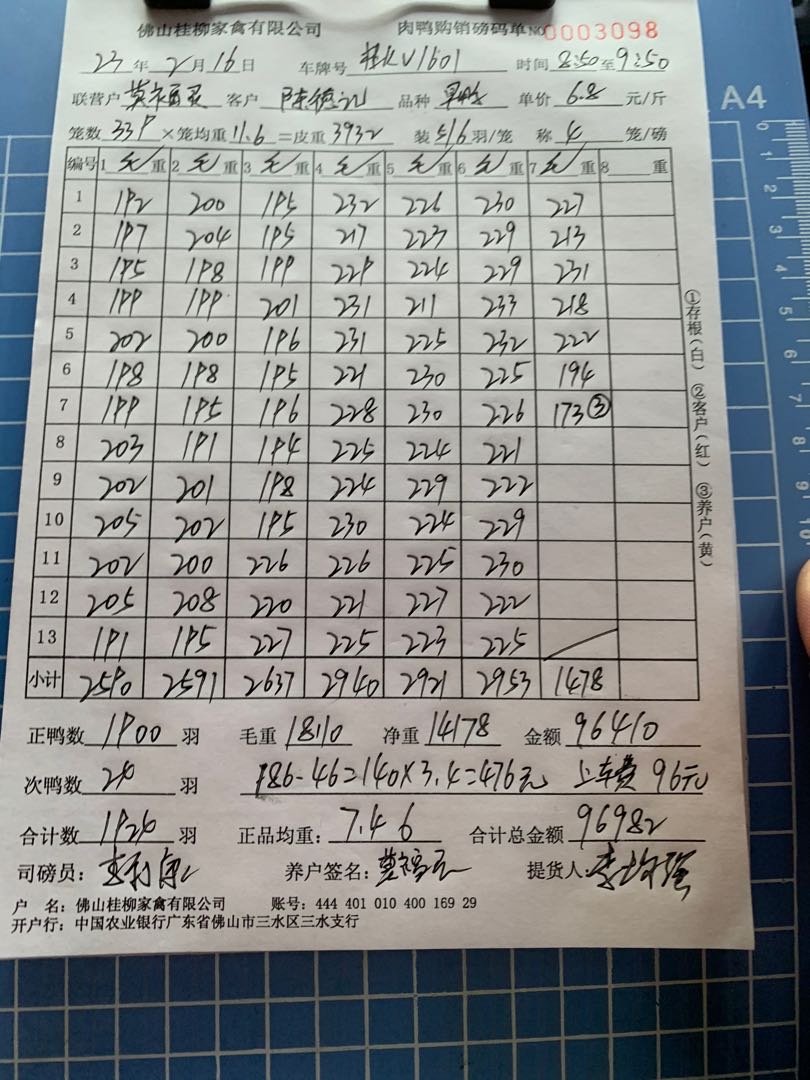 佛山桂柳家禽有限公司 肉鸭购销磅码单 NO 0003098
23年2月16日 车牌号 桂KV1601 时间 8:50至9:50
联营户 客户 陈德记 品种 单价 6.8 元/斤
笼数 339 ×笼均重 11.6 =皮重 3932 装 5/6 羽/笼 称 4 笼/磅
编号 1 毛重 2 毛重 3 毛重 4 毛重 5 毛重 6 毛重 7 毛重 8 重
1 192 200 195 232 226 230 227
2 197 204 195 217 223 229 213
3 195 198 199 229 224 229 231
4 199 199 201 231 211 233 218
5 202 200 196 231 225 232 222
6 198 198 195 221 230 225 194
7 199 195 196 228 230 226 173③
8 203 191 194 225 224 221
9 202 201 198 224 229 222
10 205 202 195 230 224 229
11 202 200 226 226 225 230
12 205 208 220 221 227 222
13 191 195 227 225 223 225
小计 2590 2591 2637 2940 2921 2953 1478
①存根(白) ②客户(红) ③养户(黄)
正鸭数 1900 羽 毛重 18110 净重 14178 金额 96410
次鸭数 26 羽 186-46=140×3.4=476元 上车费 96元
合计数 1926 羽 正品均重: 7.46 合计总金额 96982
司磅员: 养户签名: 提货人:
户 名: 佛山桂柳家禽有限公司 账号: 444 401 010 400 169 29
开户行: 中国农业银行广东省佛山市三水区三水支行
A4
0 1 2 3 4 5 6 7 8 9 10